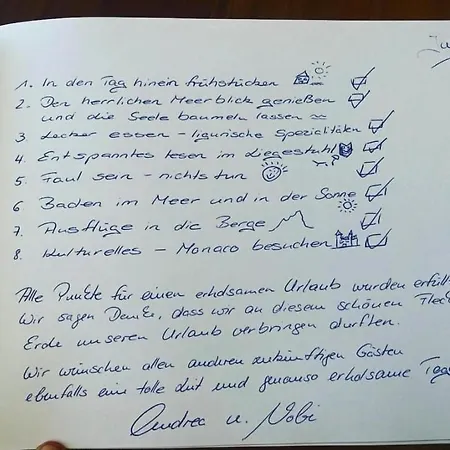 Ju
1. In den Tag hinein frühstücken
2. Den herrlichen Meerblick genießen
und die Seele baumeln lassen
3 Lecker essen - ligurische Spezialitäten
4. Entspanntes lesen im Liegestuhl
5. Faul sein - nichts tun
6 Baden im Meer und in der Sonne
7. Ausflüge in die Berge
8. Kulturelles - Monaco besuchen
Alle Punkte für einen erholsamen Urlaub wurden erfüll
Wir sagen Danke, dass wir an diesem schönen Fleck
Erde unseren Urlaub verbringen durften.
Wir wünschen allen anderen zukünftigen Gästen
ebenfalls eine tolle Zeit und genauso erholsame Tage
Andrea u. Nobi